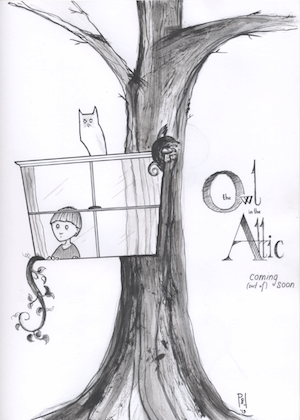 the Owl
in the
Attic
coming
(owl of) soon
'13